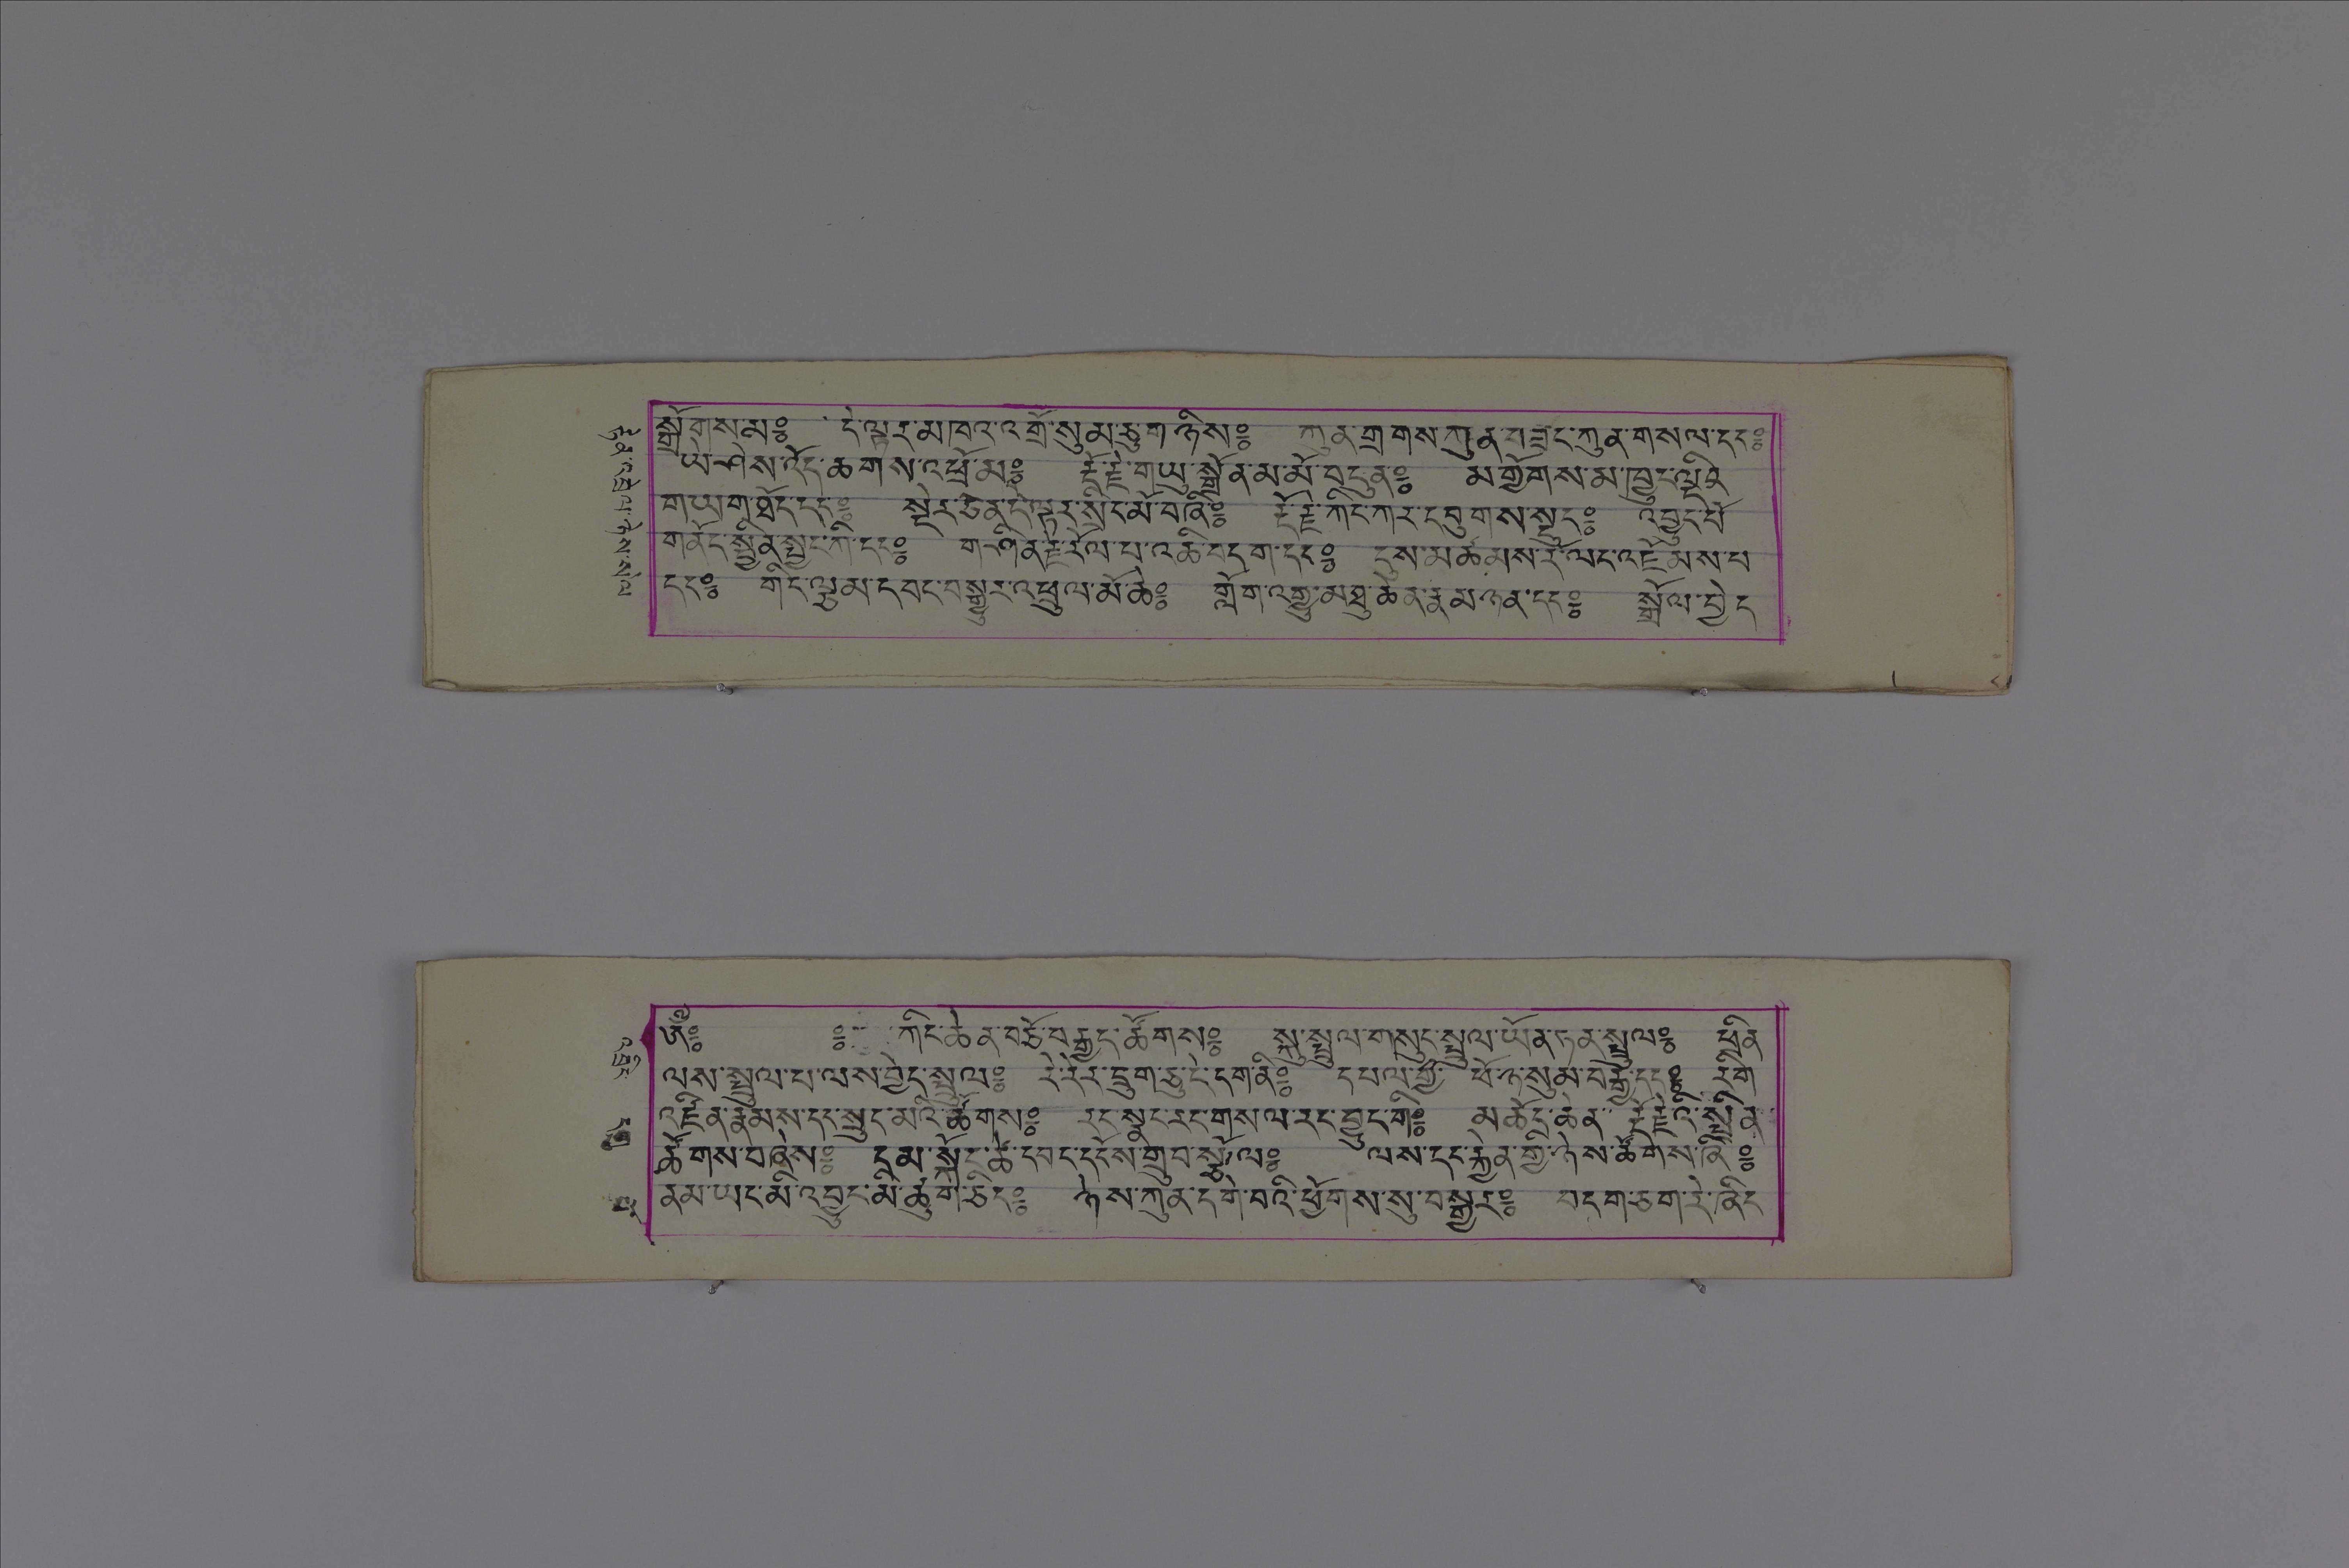 སྒྲོགས་མ༔ དེ་ལྟར་མཁའ་འགྲོ་སུམ་ཅུ་གཉིས༔ ཀུན་གྲགས་ཀུན་བཟང་ཀུན་གསལ་དང༔
ཡེ་ཤེས་འོད་ཆགས་འཕྲོ་མ༔ རྡོ་རྗེ་གཡུ་སྒྲོན་མ་མོ་བདུན༔ མགྱོགས་མ་ཁྱུང་ལྡིང
གཡག་ཐོད་དང༔ སྡེར་ཅན་དེ་ལྟར་སྲིང་མོ་བཞི༔ རྡོ་རྗེ་ཀིང་ཀར་དབུགས་སྡུད༔ འབྱུང་པོ
གནོད་སྦྱིན་སྤྱང་ཀི་དང༔ གཤིན་རྗེ་རོལ་པ་འཆི་བདག་དང༔ དུས་མཚམས་རོ་ལང་འཇོམས་པ
དང༔ གིང་ལྕམ་དབང་བསྒྱུར་འཕྲུལ་མོ་ཆེ༔ གློག་འགྱུ་མཐུ་ཆེན་རྣམ་ཉན་དང༔ སྒྲོལ་བྱེད
ཨོཾ༔ ༔ ཀིང་ཆེན་བཅོ་བརྒྱད་ཚོགས༔ སྐུ་སྤྲུལ་གསུང་སྤྲུལ་ཡོན་ཏན་སྤྲུལ༔ ཕྲིན
ལས་སྤྲུལ་པ་ལས་བྱེད་སྤྲུལ༔ རེ་རེར་དྲུག་ཅུ་དེ་དག་ནི༔ དཔལ་གྱི་ཕོ་ཉ་སུམ་བརྒྱ་དང༔ རིག
འཛིན་རྣམས་དང་སྲུང་མའི་ཚོགས༔ རང་སྣང་རང་གསལ་རང་བྱུང་གི༔ མཆོད་ཆེན་རྡོ་རྗེའི་སྤྲིན
ཚོགས་བཞེས༔ དམ་སྐོང་ཚེ་དབང་དངོས་གྲུབ་སྩོལ༔ ལས་དང་རྐྱེན་གྱི་ཉེས་ཚོགས་ཞི༔
ནམ་ཡང་མི་འབྱུང་མི་ཚུགས་ཅིང༔ ཉེས་ཀུན་དགེ་བའི་ཕྱོགས་སུ་བསྒྱུར༔ བདག་ཅག་རེ་ཞིང